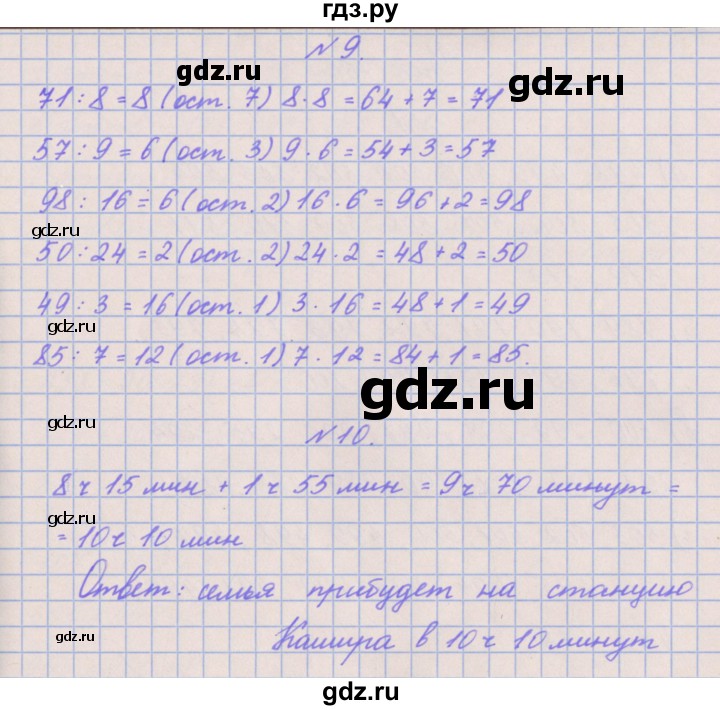 гдз.ру
№ 9.
gdz.ru
gdz.ru
71 : 8 = 8 (ост. 7) 8 · 8 = 64 + 7 = 71
57 : 9 = 6 (ост. 3) 9 · 6 = 54 + 3 = 57
98 : 16 = 6 (ост. 2) 16 · 6 = 96 + 2 = 98
gdz.ru
gdz.ru
50 : 24 = 2 (ост. 2) 24 · 2 = 48 + 2 = 50
49 : 3 = 16 (ост. 1) 3 · 16 = 48 + 1 = 49
gdz.ru
85 : 7 = 12 (ост. 1) 7 · 12 = 84 + 1 = 85.
gdz.ru
gdz.ru
№ 10.
8 ч 15 мин + 1 ч 55 мин = 9 ч 70 минут =
gdz.ru
= 10 ч 10 мин
Ответ: семья прибудет на станцию
gdz.ru
Кашира в 10 ч 10 минут
gdz.ru
gdz.ru